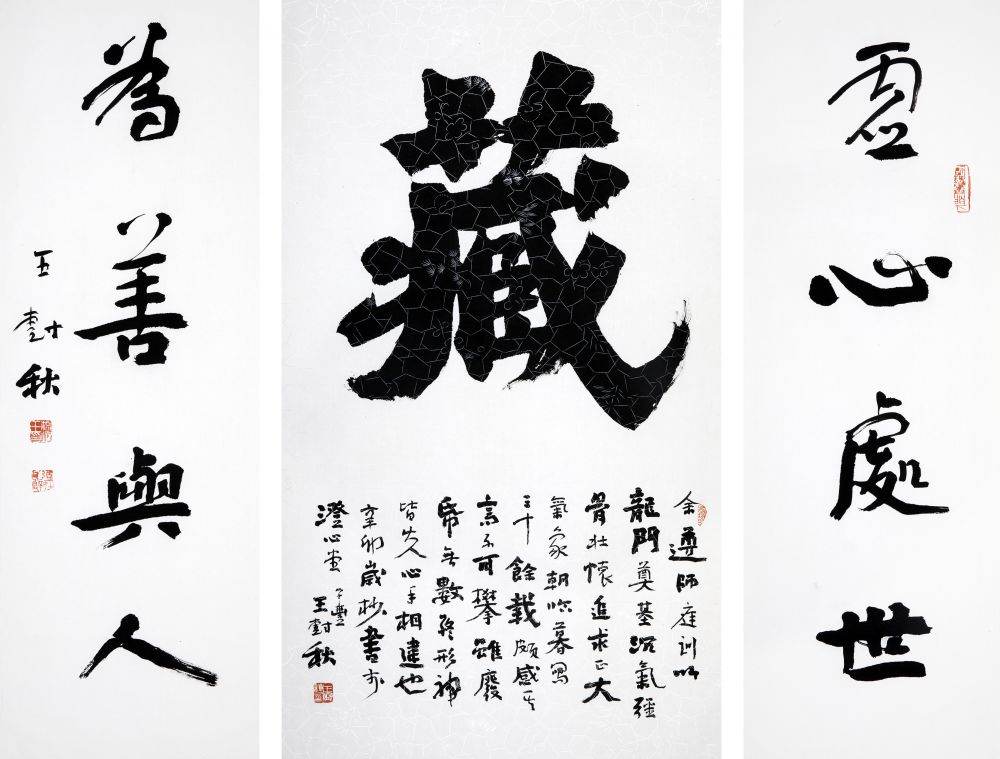 虛心處世
藏
余遵師庭訓以
龍門奠基沉氣強
骨壯懷追求正大
氣象朝吟暮寫
三十餘載頗感其
高不可攀雖廢
帋無數終形神
皆失人心手相違也
辛卯歲杪書於
澄心堂 子豐
王尌秋
為善與人
王尌秋